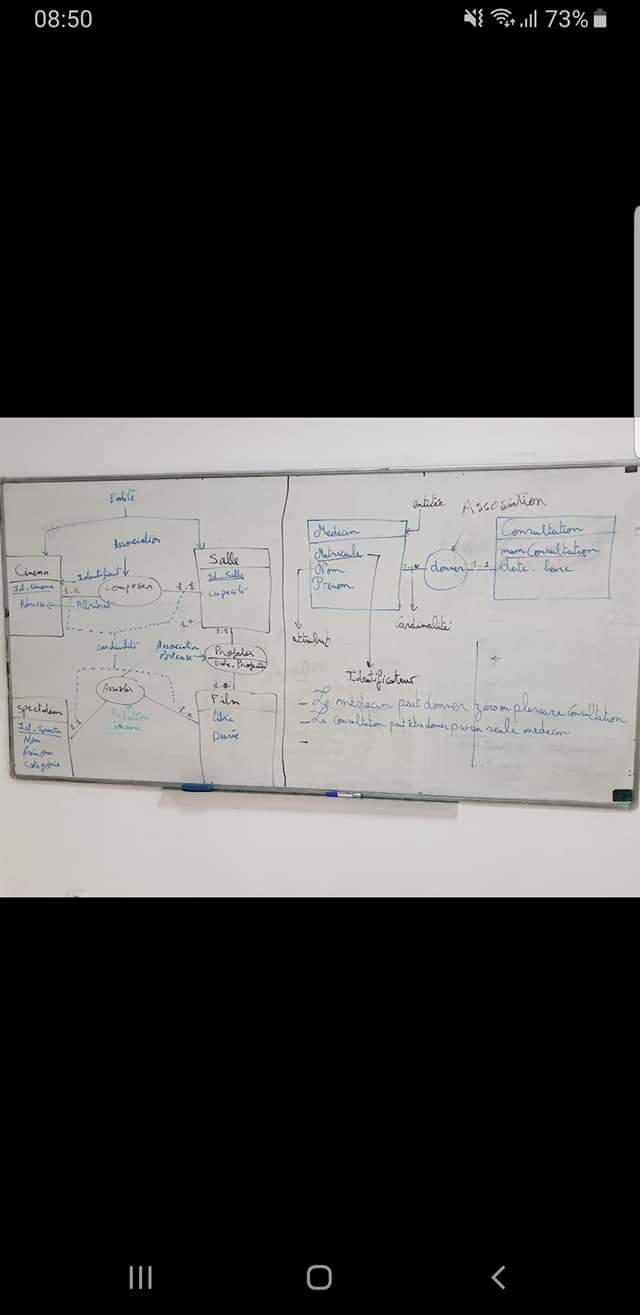 08:50
73%
Entité
Association
Cinema
Id_Cinema
Adresse
Identifiant
Attribut
Composer
1.1
Salle
Id_Salle
Capacité
1.*
1.1
Cardinalité
Association
Porteuse
Projeter
Date_Projeter
1.*
Assister
Spectateur
1.1
Nom
Prénom
Catégorie
Film
titre
Durée
entitée
Assosiation
Medecin
Matricule
Nom
Prenom
donner
1-1
Consultation
num Consultation
date. heure
attribut
cardinalité
Identificateur
- Le médecin peut donner zero ou plusieurs consultation
- La consultation peut être donner par un seule medecin
-